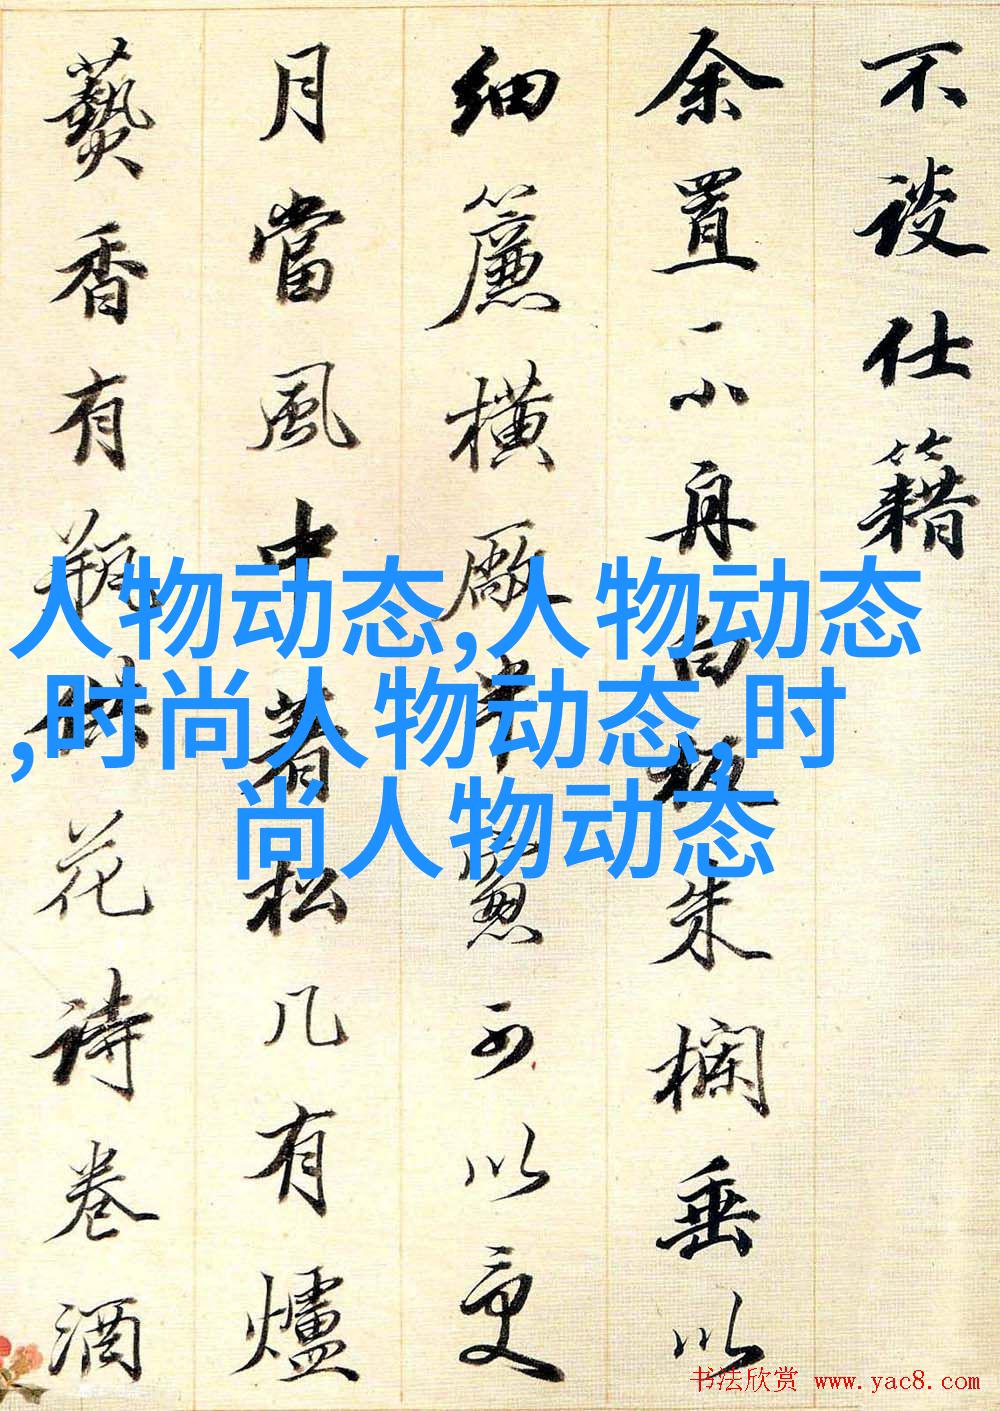 不談仕籍
余置一小舟白板朱欄垂以
細簾橫廠半窻可以更
月當風中著松几有爐
爇香有瓶供花詩卷酒
人物动态,人物动态
,时尚人物动态,时
尚人物动态
书法欣赏 www.yac8.com